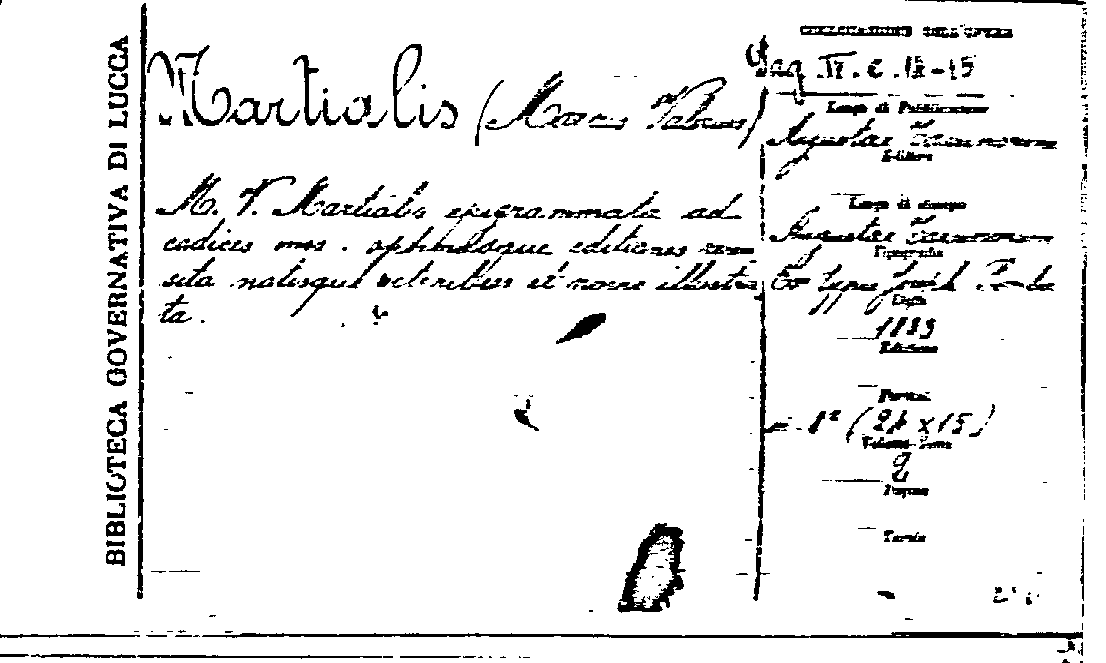 BIBLIOTECA GOVERNATIVA DI LUCCA
Martialis (Marcus Valerius)
M. V. Martialis epigrammata ad
codices mss. optimasque editiones
sita notisque veteribus et novis illustra
ta.
COLLOCAZIONE DELL'OPERA
Luogo di Pubblicazione
Augustae Taurinorum
Editore
Luogo di stampa
Augustae Taurinorum
Tipografia
Ex typis Joseph Pomba
Data
1833
Edizione
Formato
8° (24 x 15)
Volume-Tomo
2
Pagine
Tavole